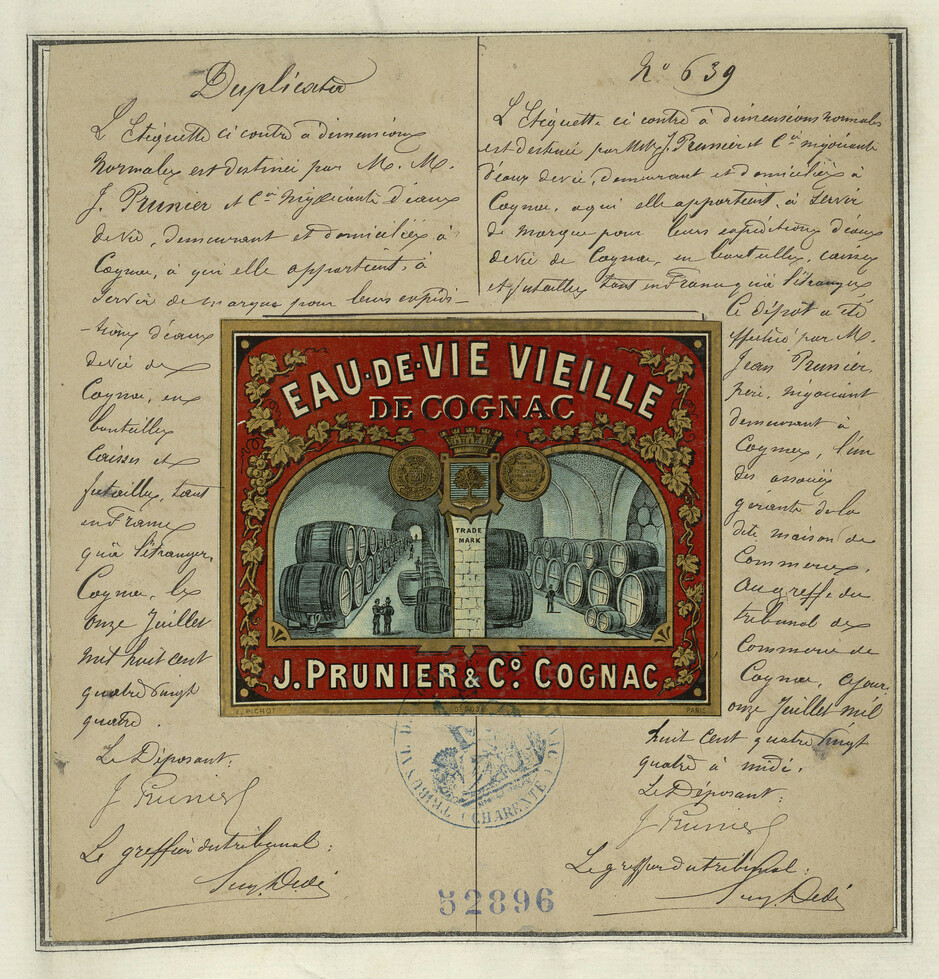 Duplicata
L'Etiquette ci contre à dimensions
normales est destinée par M. M.
J. Prunier et Cie négociants d'eaux
de vie, demeurant et domiciliés à
Cognac, à qui elle appartient, à
servir de marque pour leurs expédi-
-tions d'eaux
de vie de
Cognac, en
bouteilles
caisses et
futailles, tant
en France
qu'à l'étranger.
Cognac, le
onze Juillet
mil huit cent
quatre vingt
quatre.
Le Déposant:
J Prunier
Le greffier du tribunal:
N° 639
L'Etiquette ci contre à dimensions normales
est destinée par MM. J. Prunier et Cie négociants
d'eaux de vie, demeurant et domiciliés à
Cognac, à qui elle appartient, à servir
de marque pour leurs expéditions d'eaux
de vie de Cognac, en bouteilles, caisses
et futailles tant en France qu'à l'étranger
Le dépôt a été
effectué par M.
Jean Prunier
père, négociant
demeurant à
Cognac, l'un
des associés
gérants de la
dite maison de
Commerce,
au greffe du
tribunal de
Commerce de
Cognac, ce jour
onze Juillet mil
huit cent quatre vingt
quatre à midi.
Le Déposant:
J Prunier
Le greffier du tribunal:
EAU-DE-VIE VIEILLE
DE COGNAC
TRADE
MARK
J. PRUNIER & Co. COGNAC
PICHOT
PARIS
TRIBUNAL D
CHARENTE
52896